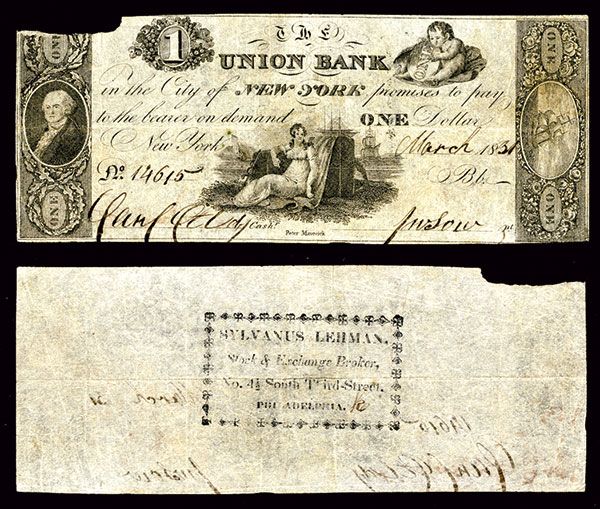 THE
1
UNION BANK
in the City of NEW YORK promises to pay
to the bearer on demand ONE Dollar
New York March 1831
No. 14615
Cash.r
Peter Maverick
ONE
ONE
ONE
ONE
ONE
SYLVANUS LEHMAN,
Stock & Exchange Broker,
No. 4½ South Third-Street,
PHILADELPHIA.